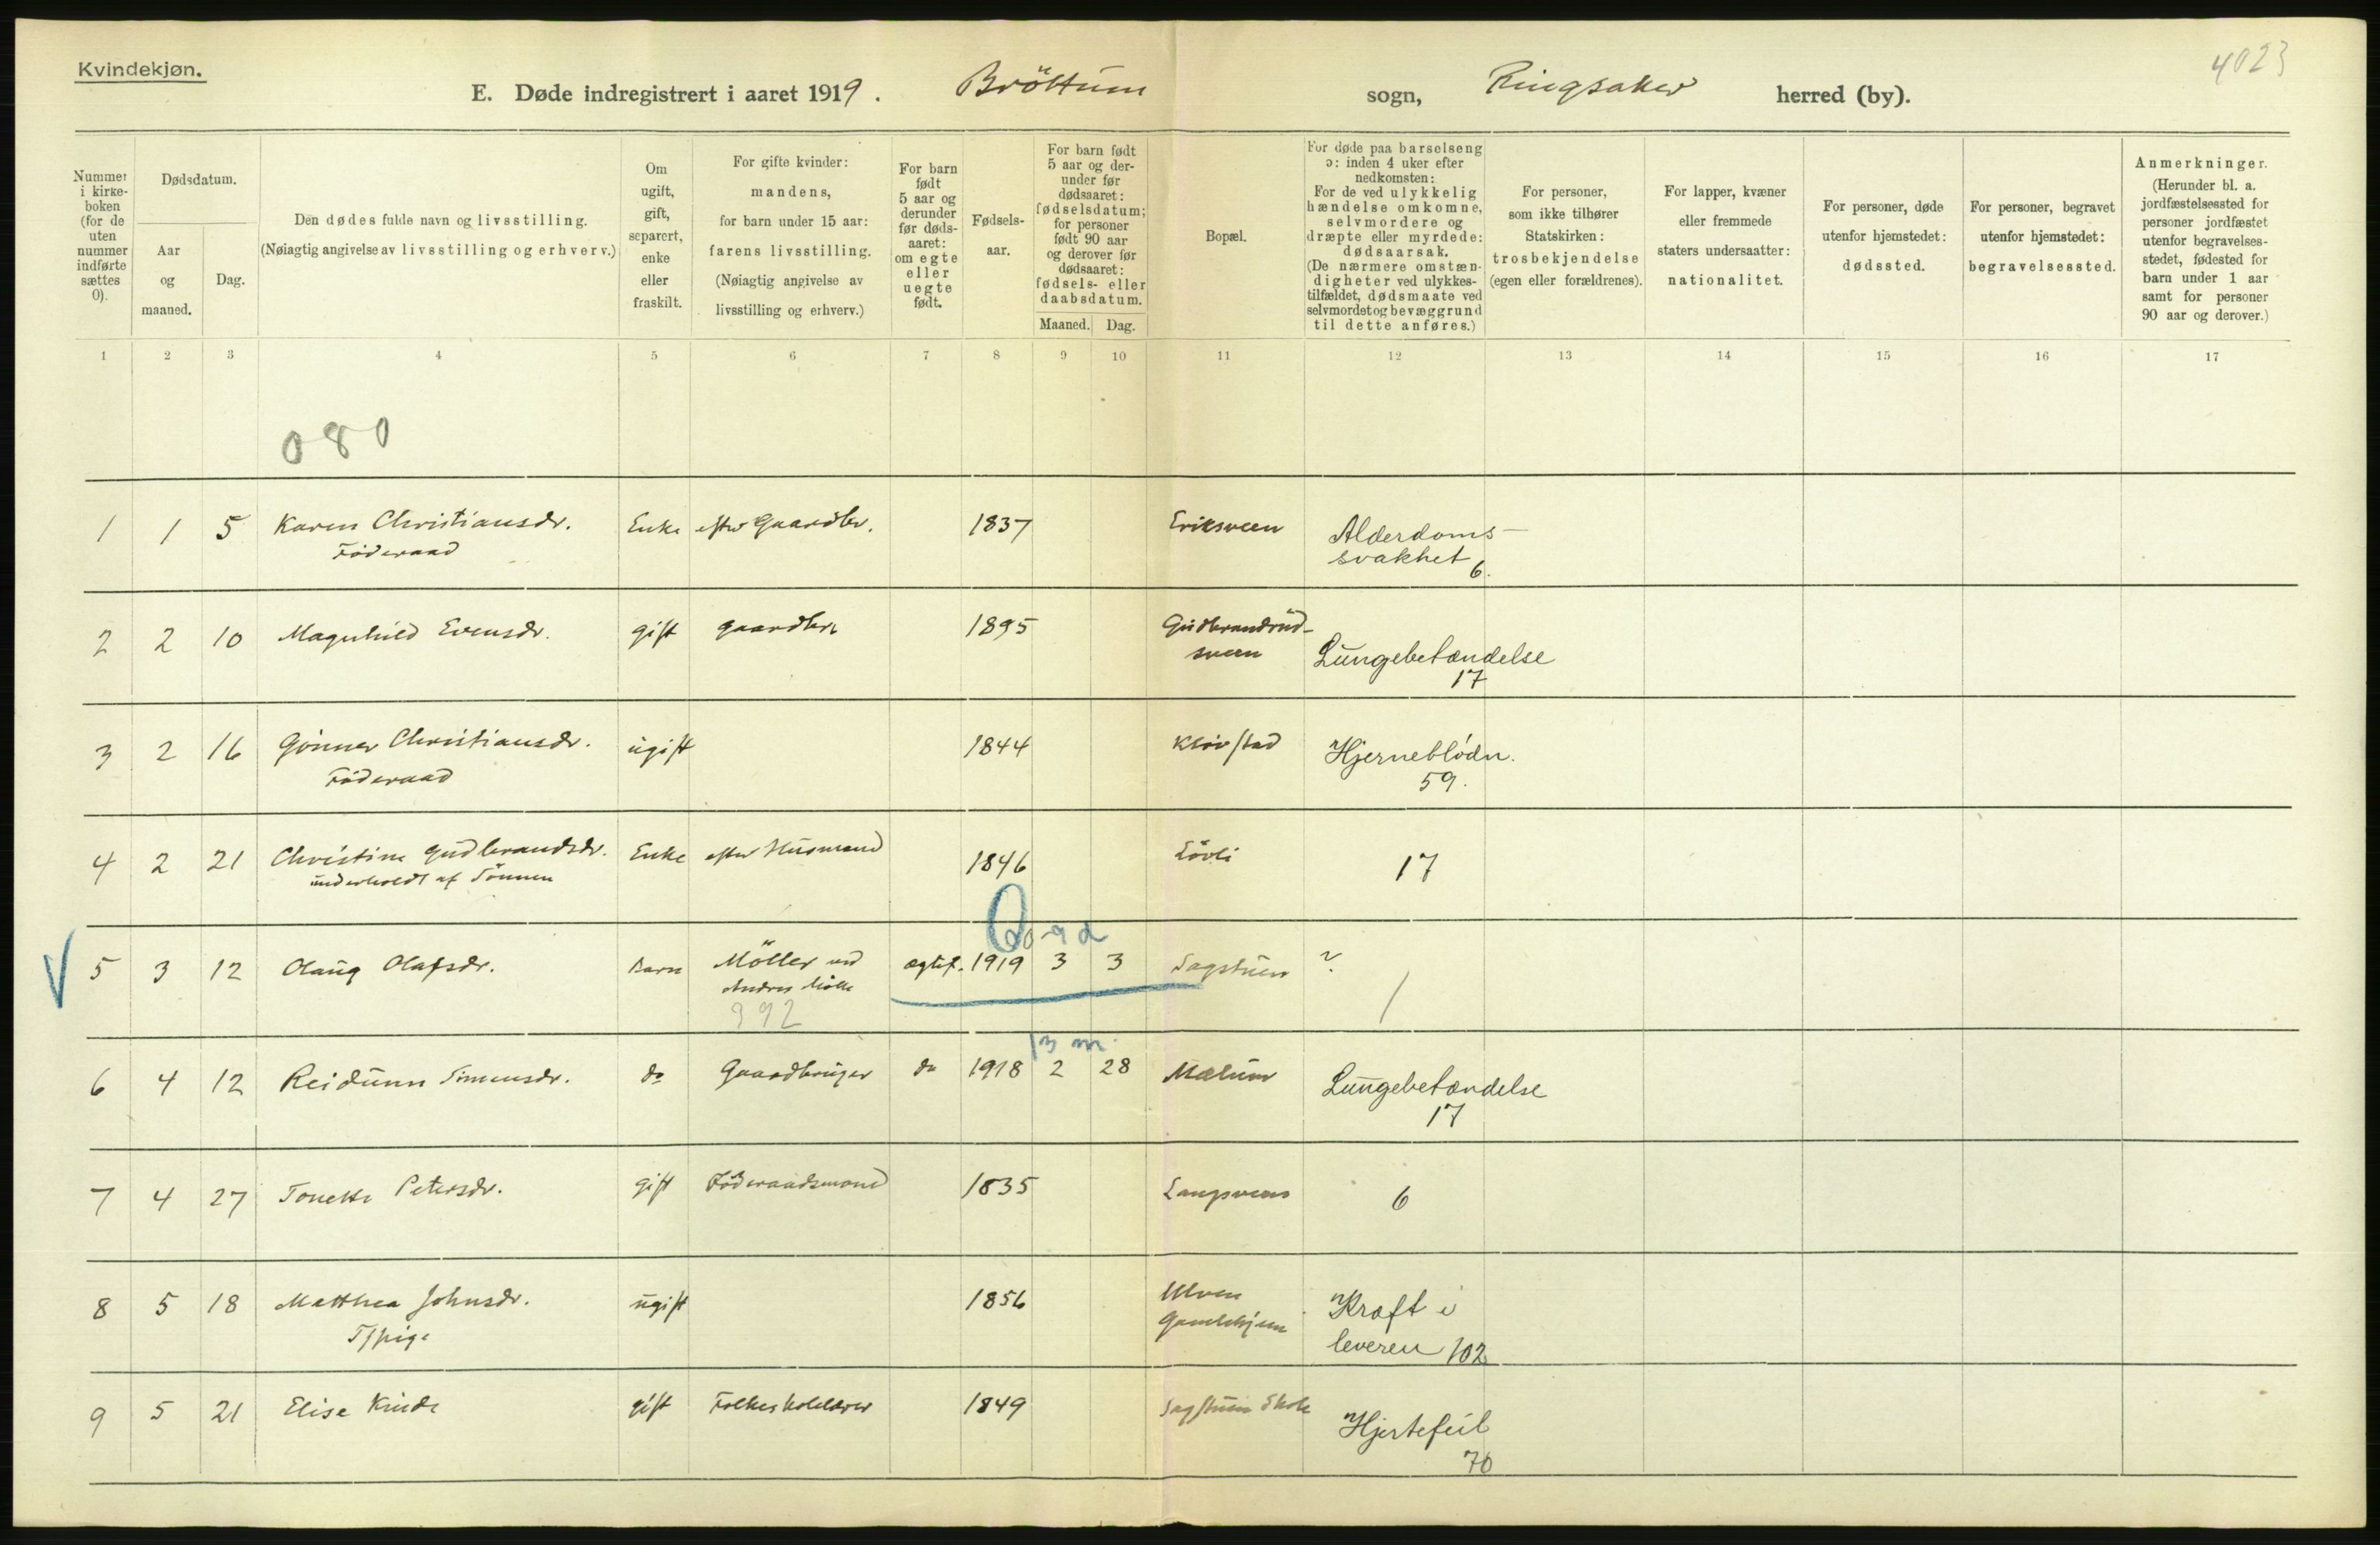 Kvindekjøn.
4023
E. Døde indregistrert i aaret 1919. Bröttum sogn, Ringsaker herred (by).
Nummer i kirkeboken (for de uten nummer indførte sættes 0).
Dødsdatum.
Aar og maaned.
Dag.
Den dødes fulde navn og livsstilling.
(Nøiagtig angivelse av livsstilling og erhverv.)
Om ugift, gift, separert, enke eller fraskilt.
For gifte kvinder: mandens, for barn under 15 aar: farens livsstilling. (Nøiagtig angivelse av livsstilling og erhverv.)
For barn født 5 aar og derunder før dødsaaret: om egte eller uegte født.
Fødselsaar.
For barn født 5 aar og derunder før dødsaaret: fødselsdatum; for personer født 90 aar og derover før dødsaaret: fødsels- eller daabsdatum.
Maaned. Dag.
Bopæl.
For døde paa barselseng ɔ: inden 4 uker efter nedkomsten: For de ved ulykkelig hændelse omkomne, selvmordere og dræpte eller myrdede: dødsaarsak. (De nærmere omstændigheter ved ulykkestilfældet, dødsmaate ved selvmordet og bevæggrund til dette anføres.)
For personer, som ikke tilhører Statskirken: trosbekjendelse (egen eller forældrenes).
For lapper, kvæner eller fremmede staters undersaatter: nationalitet.
For personer, døde utenfor hjemstedet: dødssted.
For personer, begravet utenfor hjemstedet: begravelsessted.
Anmerkninger. (Herunder bl. a. jordfæstelsessted for personer jordfæstet utenfor begravelsesstedet, fødested for barn under 1 aar samt for personer 90 aar og derover.)
1 2 3 4 5 6 7 8 9 10 11 12 13 14 15 16 17
080
1 1 5 Karen Christiansdr. Enke efter Gaardbr. 1837 Eriksveen Alderdoms-
Föderaad svakhet 6.
2 2 10 Magnhild Evensdr. gift gaardbr. 1895 Gudbrandrud-
sveen Lungebetændelse
17
3 2 16 Gönner Christiansdr. ugift 1844 Klövstad Hjerneblödn.
Föderaad 59.
4 2 21 Christine Gudbrandsdr. Enke efter Husmand 1846 Lövli 17
underholdt af Sönnen
9 d
5 3 12 Olaug Olafsdr. Barn Möller ved ægtef. 1919 3 3 Sagstuen ?
1
392
13 m.
6 4 12 Reidunn Simensdr. do Gaardbruger do 1918 2 28 Mælum Lungebetændelse
17
7 4 27 Tonette Petersdr. gift Föderaadsmand 1835 Langsveen 6
8 5 18 Matthea Johnsdr. ugift 1856 Ulven
Gamlehjem Kræft i
Tjpige leveren 102
9 5 21 Elise Kinde gift Folkeskolelærer 1849 Sagstuen Skole Hjertefeil
70